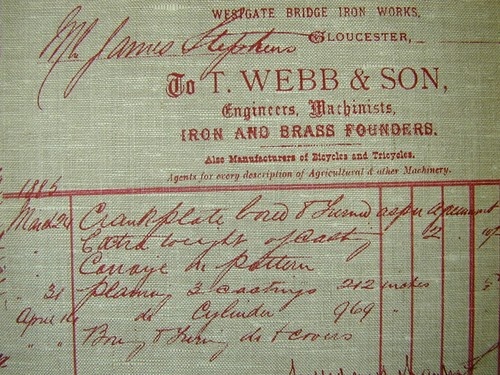 WESTGATE BRIDGE IRON WORKS,
GLOUCESTER,
Mr James Stephens
To T. WEBB & SON,
Engineers, Machinists,
IRON AND BRASS FOUNDERS.
Also Manufacturers of Bicycles and Tricycles.
Agents for every description of Agricultural & other Machinery.
March 24 Crankplate bored & turned as per agreement
Extra weight of casting
Carraije on pattern
" 31 planing 3 castings 212 inches
April do Cylinder 969 "
" " Boring & turning do & covers